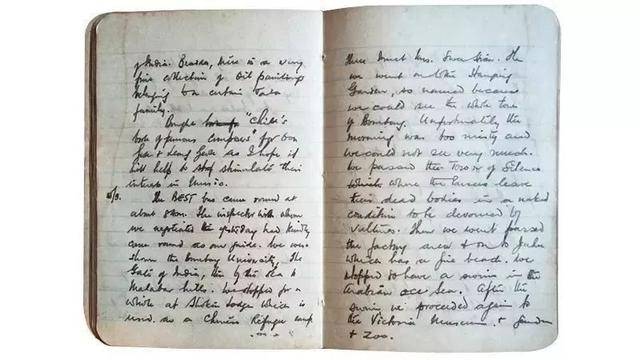 of India. Besides, there is a very
fine collection of oil paintings
belonging to a certain Tata
family.
Bought "Child's
book of famous Composers" for Bon
Gea & Leng Geok as I hope it
will help to stimulate their
interest in Music.
The BEST bus came round at
about 8 am. The inspector with whom
we negotiated the yesterday had kindly
came round as our guide. We were
shown the Bombay University, the
Gate of India, then by the sea to
Malabar hills. We stopped for a
while at Lodge which is
used as a Chinese Refugee camp
There meet Mrs. Swee Sian. Then
we went on to the Hanging
Garden, so named because
we could see the whole town
of Bombay. Unfortunately the
morning was too misty and
we could not see very much.
We passed the Tower of Silence
where the Parsees leave
their dead bodies in a naked
condition to be devoured by
vultures. Then we went passed
the factory area & on to Juhu
which has a fine beach. We
stopped to have a swim in the
Arabian Sea. After the
swim we proceeded again to
the Victoria Museum & Garden
& Zoo.